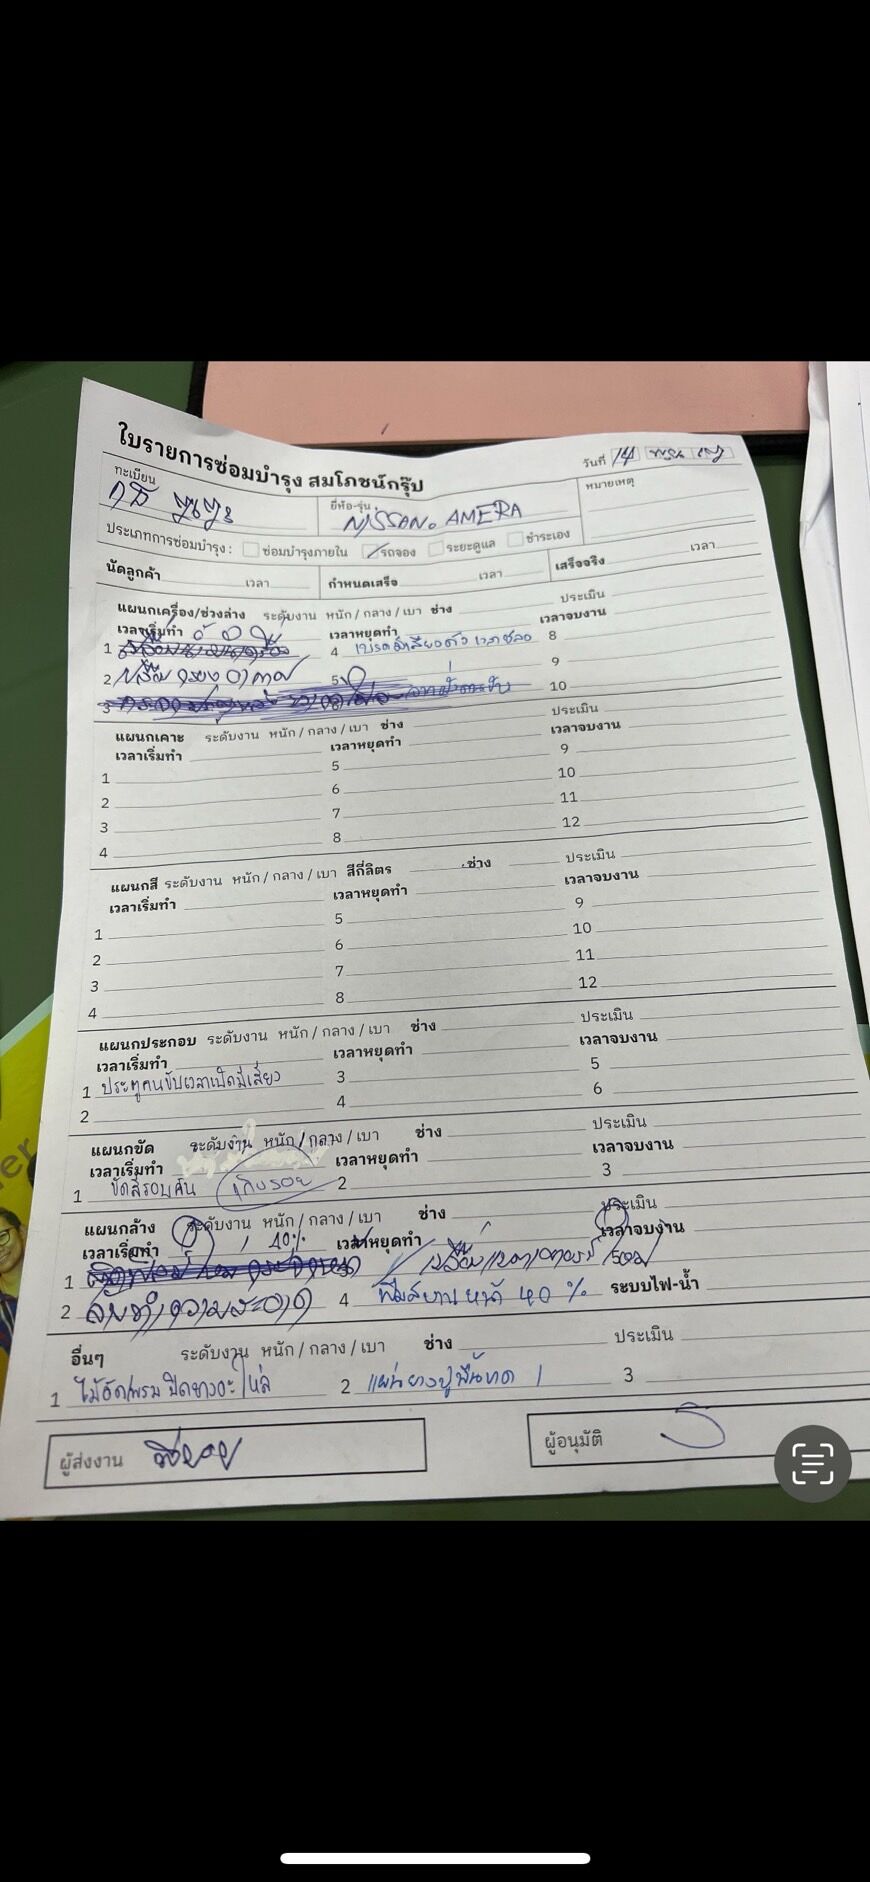 ใบรายการซ่อมบำรุง สมโภชน์กรุ๊ป
วันที่ 14
ทะเบียน
ยี่ห้อ-รุ่น NISSAN. AMERA
หมายเหตุ
ประเภทการซ่อมบำรุง : ซ่อมบำรุงภายใน รถจอง ระยะดูแล ชำระเอง
นัดลูกค้า เวลา กำหนดเสร็จ เวลา เสร็จจริง เวลา
แผนกเครื่อง/ช่วงล่าง ระดับงาน หนัก / กลาง / เบา ช่าง ประเมิน
เวลาเริ่มทำ เวลาหยุดทำ เวลาจบงาน
1 4 8
2 5 9
3 10
แผนกเคาะ ระดับงาน หนัก / กลาง / เบา ช่าง ประเมิน
เวลาเริ่มทำ เวลาหยุดทำ เวลาจบงาน
1 5 9
2 6 10
3 7 11
4 8 12
แผนกสี ระดับงาน หนัก / กลาง / เบา สีกี่ลิตร ช่าง ประเมิน
เวลาเริ่มทำ เวลาหยุดทำ เวลาจบงาน
1 5 9
2 6 10
3 7 11
4 8 12
แผนกประกอบ ระดับงาน หนัก / กลาง / เบา ช่าง ประเมิน
เวลาเริ่มทำ เวลาหยุดทำ เวลาจบงาน
1 ประตูคนขับเวลาเปิดมีเสียง 3 5
2 4 6
แผนกขัด ระดับงาน หนัก / กลาง / เบา ช่าง ประเมิน
เวลาเริ่มทำ เวลาหยุดทำ เวลาจบงาน
1 ขัดสีรอบคัน เก็บรอย 2 3
แผนกล้าง ระดับงาน หนัก / กลาง / เบา ช่าง ประเมิน
เวลาเริ่มทำ 40% เวลาหยุดทำ เวลาจบงาน
1
2 4 ฟิล์มบานหน้า 40 % ระบบไฟ-น้ำ
อื่นๆ ระดับงาน หนัก / กลาง / เบา ช่าง ประเมิน
1 ไม้อัด/พรม ปิดยางอะไหล่ 2 แผ่นยางปูพื้น 3
ผู้ส่งงาน
ผู้อนุมัติ